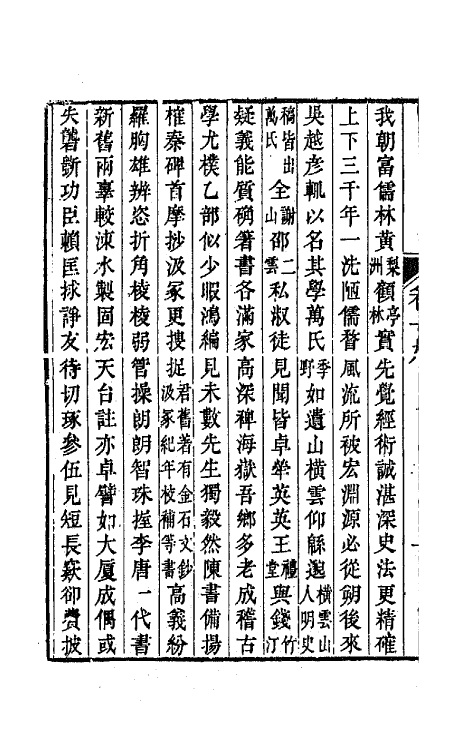 我朝富儒林黃梨洲顧亭林實先覺經術誠湛深史法更精確
上下三千年一洗陋儒瞀風流所被宏淵源必從朔後來
吳越彥輒以名其學萬氏季野如遺山橫雲仰緜邈橫雲山人明史
稿皆出萬氏全謝山邵二雲私淑徒見聞皆卓犖英英王禮堂與錢竹汀
疑義能質确箸書各滿家高深稗海嶽吾鄉多老成稽古
學尤樸乙部似少暇鴻編見未數先生獨毅然陳書備揚
榷秦碑首摩抄汲冢更搜捉君舊著有金石文鈔汲冢紀年校補等書高義紛
羅胸雄辨恣折角棱棱弱管操朗朗智珠握李唐一代書
新舊兩辜較涑水製固宏天台註亦卓譬如大厦成偶或
失礱斲功臣賴匡捄諍友待切琢參伍見短長窾卻費披